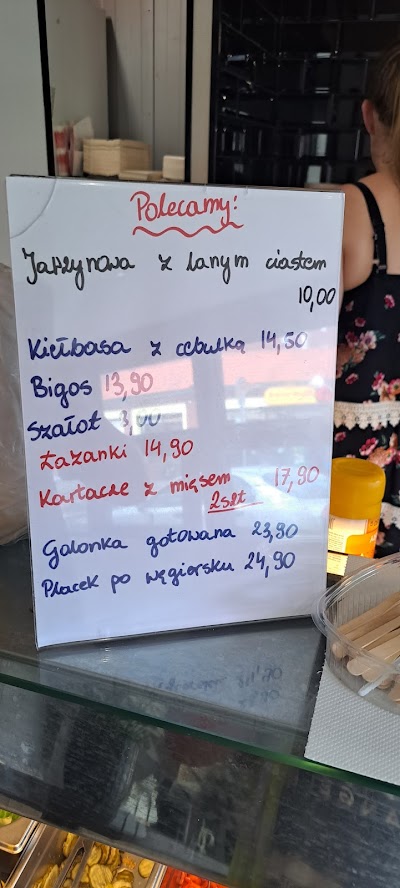 Polecamy!
Jarzynowa z lanym ciastem
10,00
Kiełbasa z cebulką 14,50
Bigos 13,90
Szałot 3,00
Łazanki 14,90
Kartacze z mięsem 17,90
2szt
Golonka gotowana 23,90
Placek po węgiersku 24,90